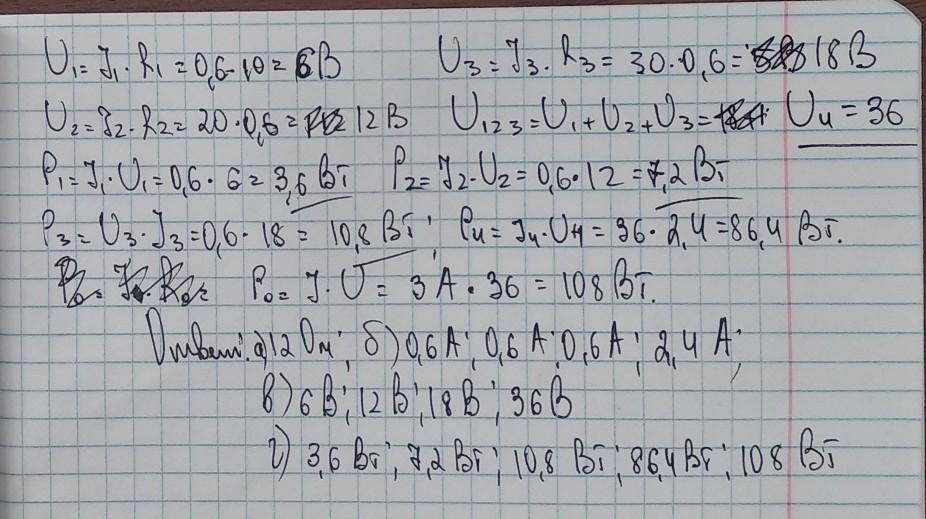 U₁ = J₁ · R₁ = 0,6 · 10 = 6В U₃ = J₃ · R₃ = 30 · 0,6 = 18В
U₂ = J₂ · R₂ = 20 · 0,6 = 12В U₁₂₃ = U₁ + U₂ + U₃ = U₄ = 36
P₁ = J₁ · U₁ = 0,6 · 6 = 3,6 Вт P₂ = J₂ · U₂ = 0,6 · 12 = 7,2 Вт
P₃ = U₃ · J₃ = 0,6 · 18 = 10,8 Вт; P₄ = J₄ · U₄ = 36 · 2,4 = 86,4 Вт.
P₀ = J · U = 3 А · 36 = 108 Вт.
Ответ: а) 12 Ом; б) 0,6 А; 0,6 А; 0,6 А; 2,4 А;
в) 6 В; 12 В; 18 В; 36 В
г) 3,6 Вт; 7,2 Вт; 10,8 Вт; 86,4 Вт; 108 Вт